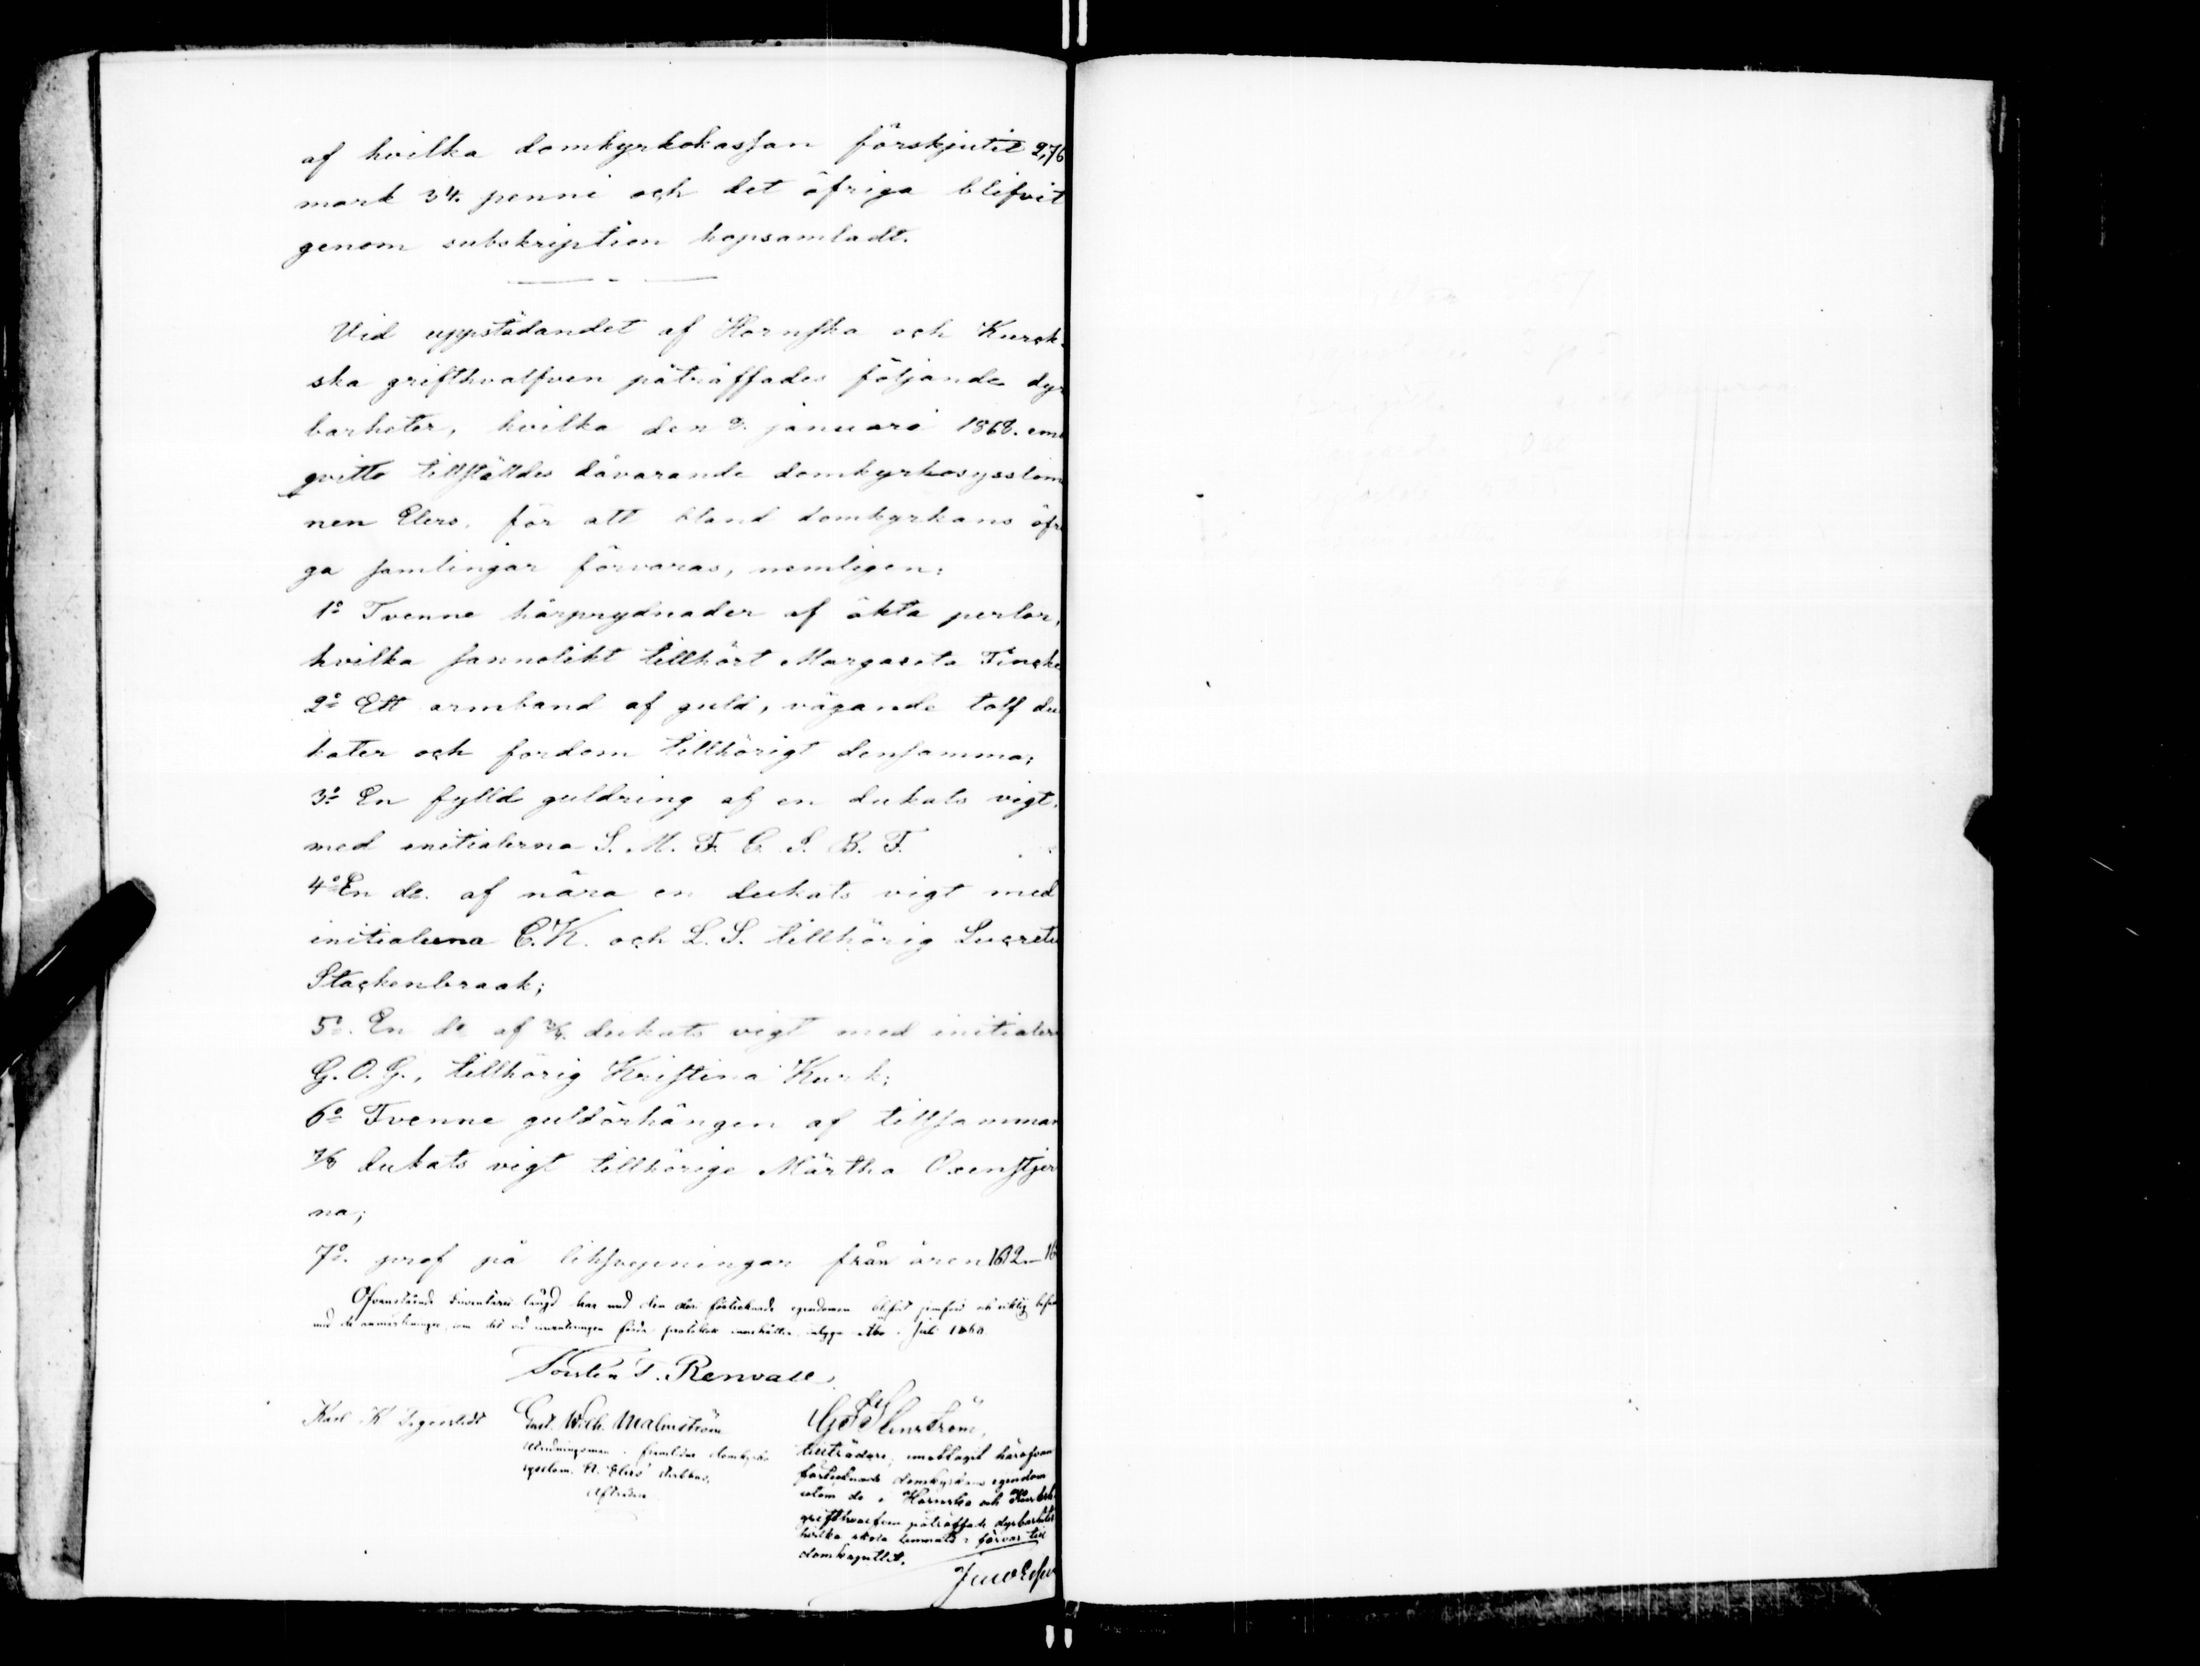 af hvilka domkyrkokassan förskjutit 2,76
mark 34. penni och det öfriga blifvit
genom subskription hopsamladt.
Vid uppstädandet af Hornska och Kurck-
ska grifthvalfven påträffades följande dyr
barheter, hvilka den 8. januari 1868. emot
qvitto tillstäldes dåvarande domkyrkosysslom
nen Elers, för att bland domkyrkans öfri
ga samlingar förvaras, nemligen:
1º Tvenne hårprydnader af äkta perlor,
hvilka sannolikt tillhört Margareta Fincke
2º Ett armband af guld, vägande tolf du
kater och fordom tillhörigt densamma;
3º En fylld guldring af en dukats vigt,
med initialerna S. M. F. C. S. B. F.
4º En do. af nära en dukats vigt med
initialerna C. K. och L. S. tillhörig Lucretia
Stackenbraak;
5º. En do af 3/4. dukats vigt med initialer
G. O. G., tillhörig Kristina Kurk;
6º Tvenne guldörhängen af tillsamman
7/8 dukats vigt tillhörige Märtha Oxenstjer
na;
7º. prof på liksvepningar från åren 1632–16
Ofvanstående Inventarii längd har med den deri förtecknade egendomen blifvit jemförd och riktig befun
med de anmärkningar, som det vid inventeringen förda protokoll innehåller, intyga. Åbo. Juli 1868
Torsten T. Renvall.
Karl K Tigerstedt
Gust. Wilh. Malmström
Utredningsman i framlidne domkyrko
sysslom. A. Elers' sterbhus.
Afträdare
Stenström,
tillträdare, emottagit härofvan
förtecknade domkyrkans egendom
som de i Hornska och Kurkska
grifthvalfven påträffade dyrbarheter
hvilka skola lemnats i förvar till
domkapitlet.